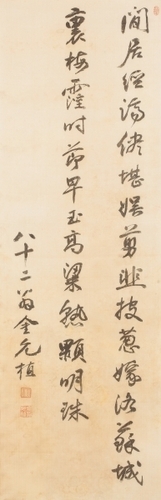 閒居經濟儘堪娛剪韭披蔥嫁洛蘇城
裏梅霪時節早玉高粱熟顆明珠
八十二翁金允植